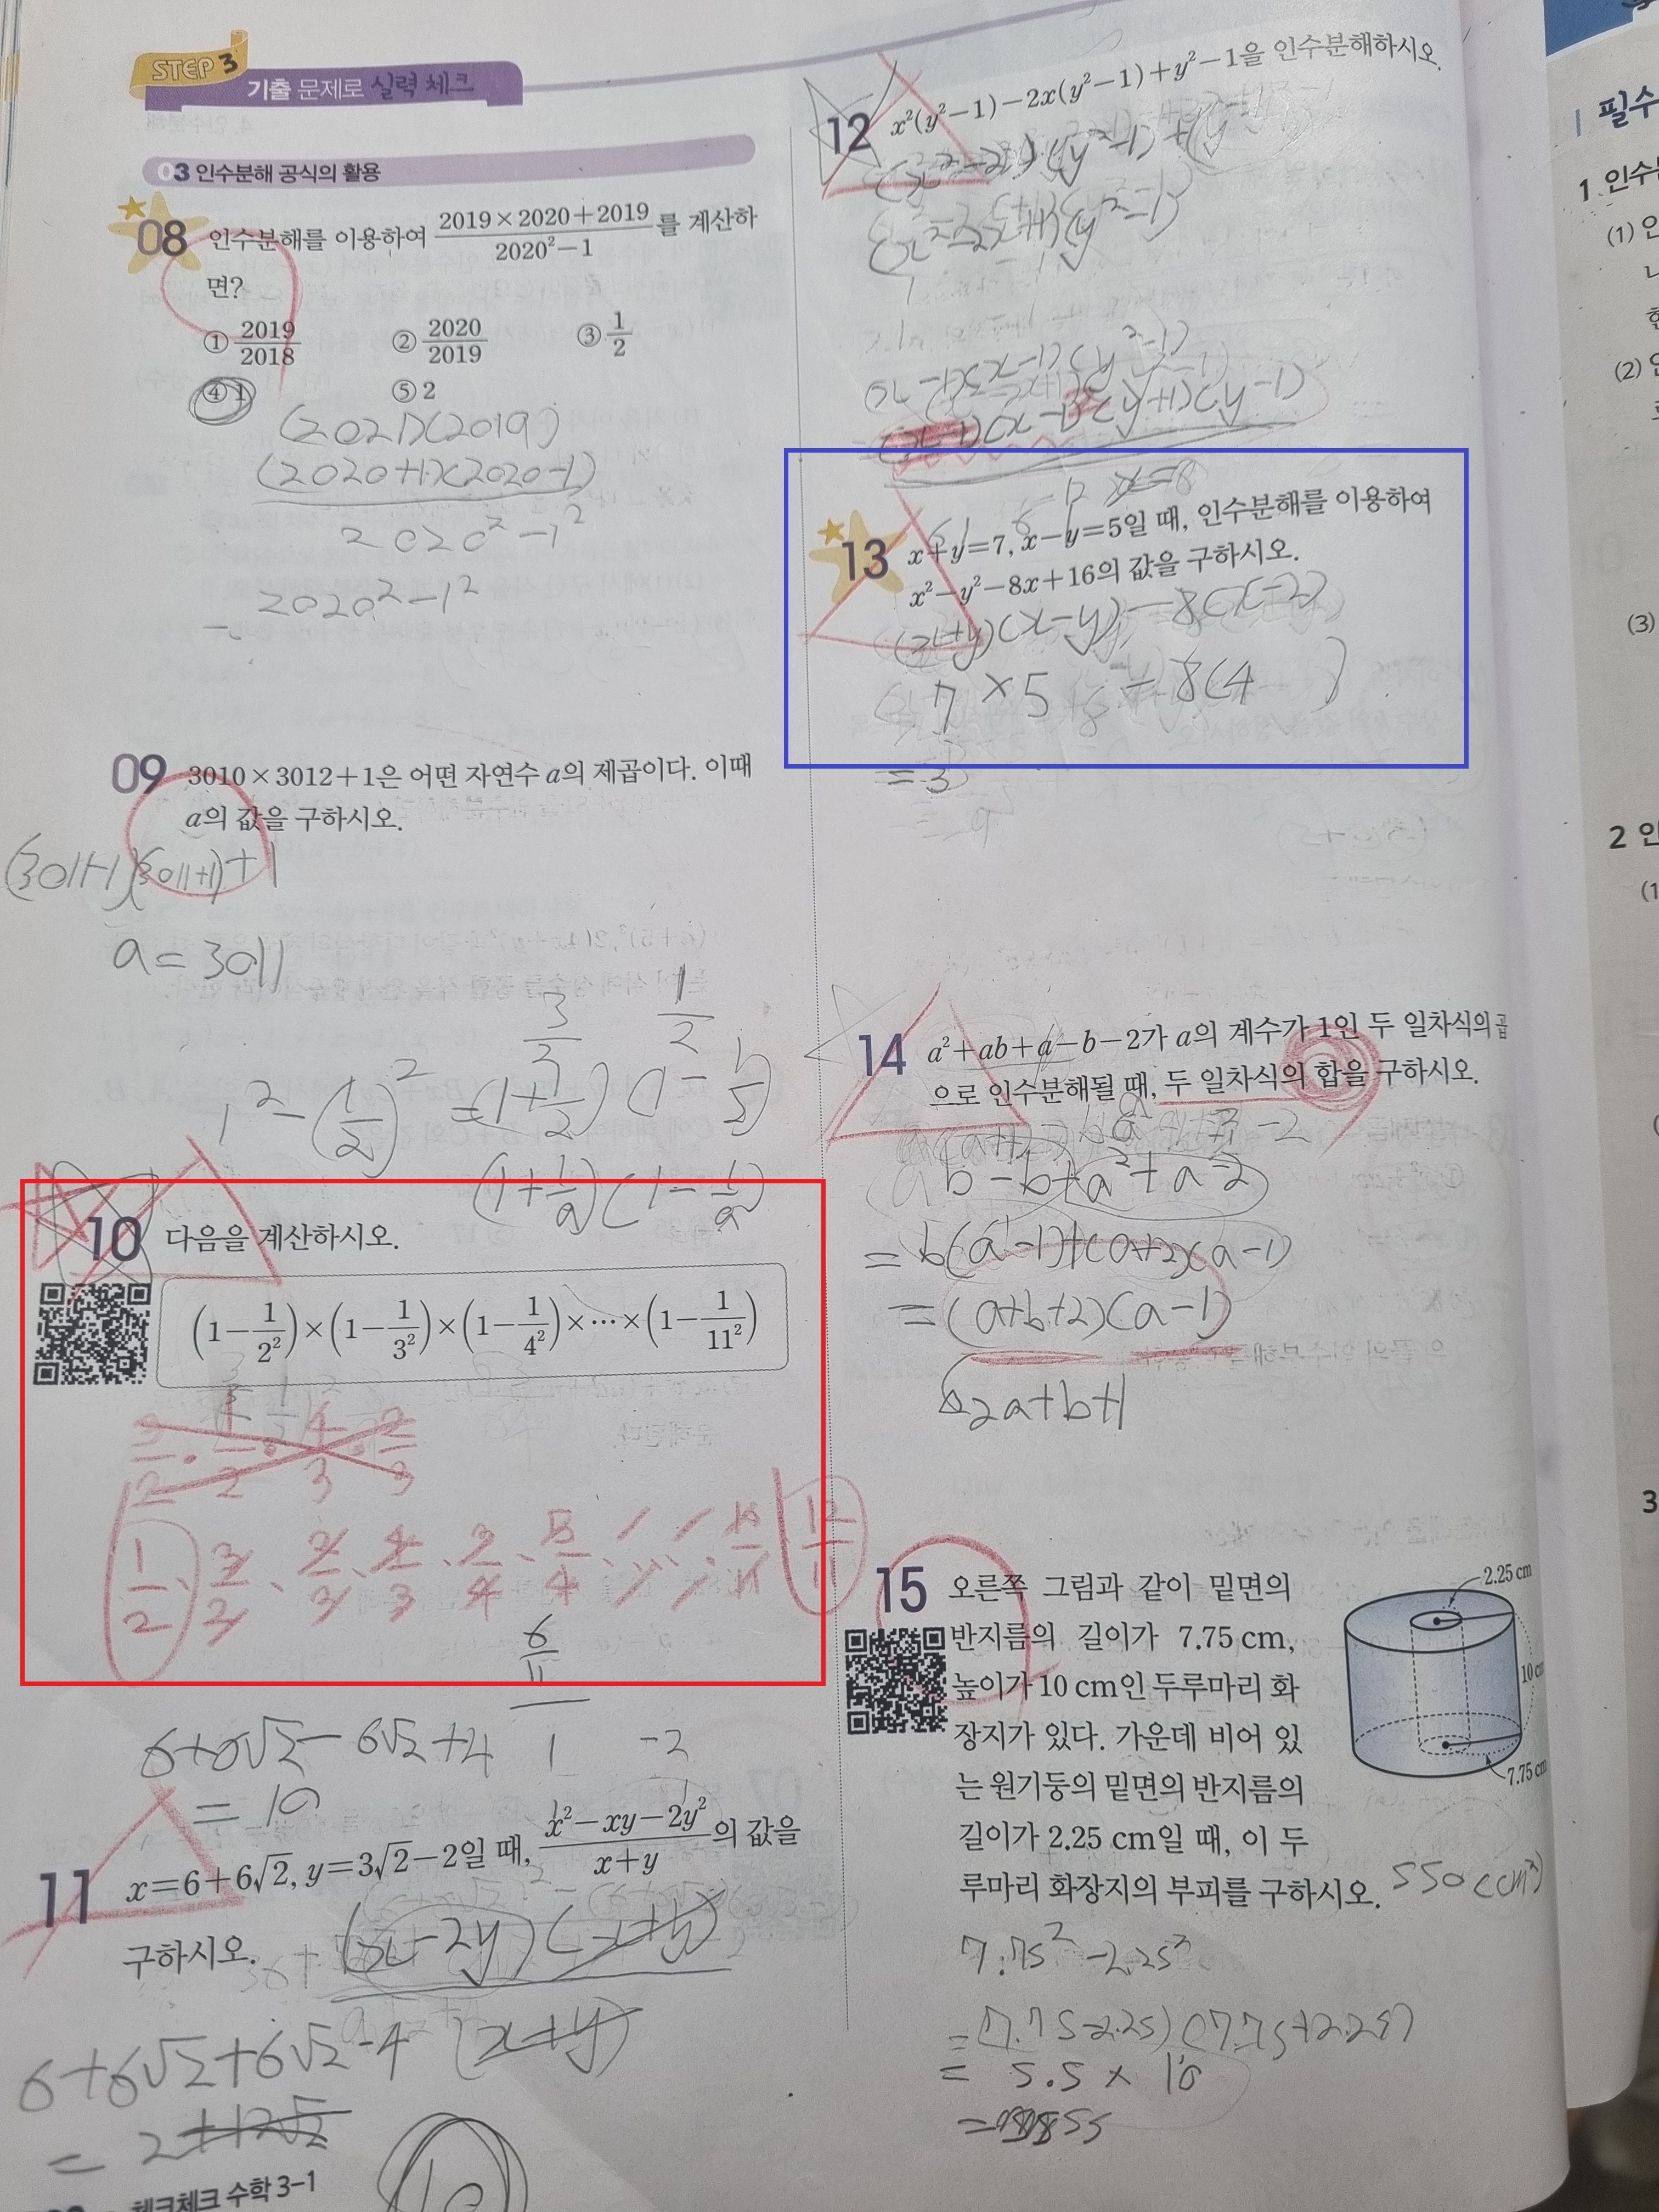 STEP 3
기출 문제로 실력 체크
03 인수분해 공식의 활용
08 인수분해를 이용하여 \frac{2019×2020+2019}{2020²-1}를 계산하
면?
① \frac{2019}{2018} ② \frac{2020}{2019} ③ \frac{1}{2}
④ 1 ⑤ 2
(2021)(2019)
(2020+1)(2020-1)
2020²-1²
2020²-1²
09 3010×3012+1은 어떤 자연수 a의 제곱이다. 이때
a의 값을 구하시오.
(3011-1)(3011+1)+1
a=3011
\frac{3}{2} \frac{1}{2}
1²-(\frac{1}{2})²=(1+\frac{1}{2})(1-\frac{1}{2})
(1+\frac{1}{a})(1-\frac{1}{a})
10 다음을 계산하시오.
(1-\frac{1}{2²})×(1-\frac{1}{3²})×(1-\frac{1}{4²})×⋯×(1-\frac{1}{11²})
\frac{1}{2}·\frac{3}{2}·\frac{2}{3}·\frac{4}{3}·\frac{3}{4}·\frac{5}{4} \frac{10}{11} \frac{12}{11}
\frac{6}{11}
6+6√2-6√2+4 1 -2
=10
11 x=6+6√2, y=3√2-2일 때, \frac{x²-xy-2y²}{x+y}의 값을
구하시오.
(x-2y)(x+y)
(x+y)
6+6√2+6√2-4
=2+12√2
10
체크체크 수학 3-1
12 x²(y²-1)-2x(y²-1)+y²-1을 인수분해하시오.
(x²-2x)(y²-1)+(y²-1)
(x²-2x+1)(y²-1)
(x-1)(x-1)(y²-1)
(x-1)(x-1)(y+1)(y-1)
13 x+y=7, x-y=5일 때, 인수분해를 이용하여
x²-y²-8x+16의 값을 구하시오.
(x+y)(x-y)-8(x-2)
7×5-8(4 )
=3
14 a²+ab+a-b-2가 a의 계수가 1인 두 일차식의 곱
으로 인수분해될 때, 두 일차식의 합을 구하시오.
ab-b+a²+a-2
=b(a-1)+(a+2)(a-1)
=(a+b+2)(a-1)
2a+b+1
15 오른쪽 그림과 같이 밑면의
반지름의 길이가 7.75 cm,
높이가 10 cm인 두루마리 화
장지가 있다. 가운데 비어 있
는 원기둥의 밑면의 반지름의
길이가 2.25 cm일 때, 이 두
루마리 화장지의 부피를 구하시오.
2.25 cm
10 cm
7.75 cm
550(cm³)
7.75²-2.25²
=(7.75-2.25)(7.75+2.25)
=5.5×10
=55
필수
1 인수
(1) 인
(2) 인
(3)
2 인
(1
3